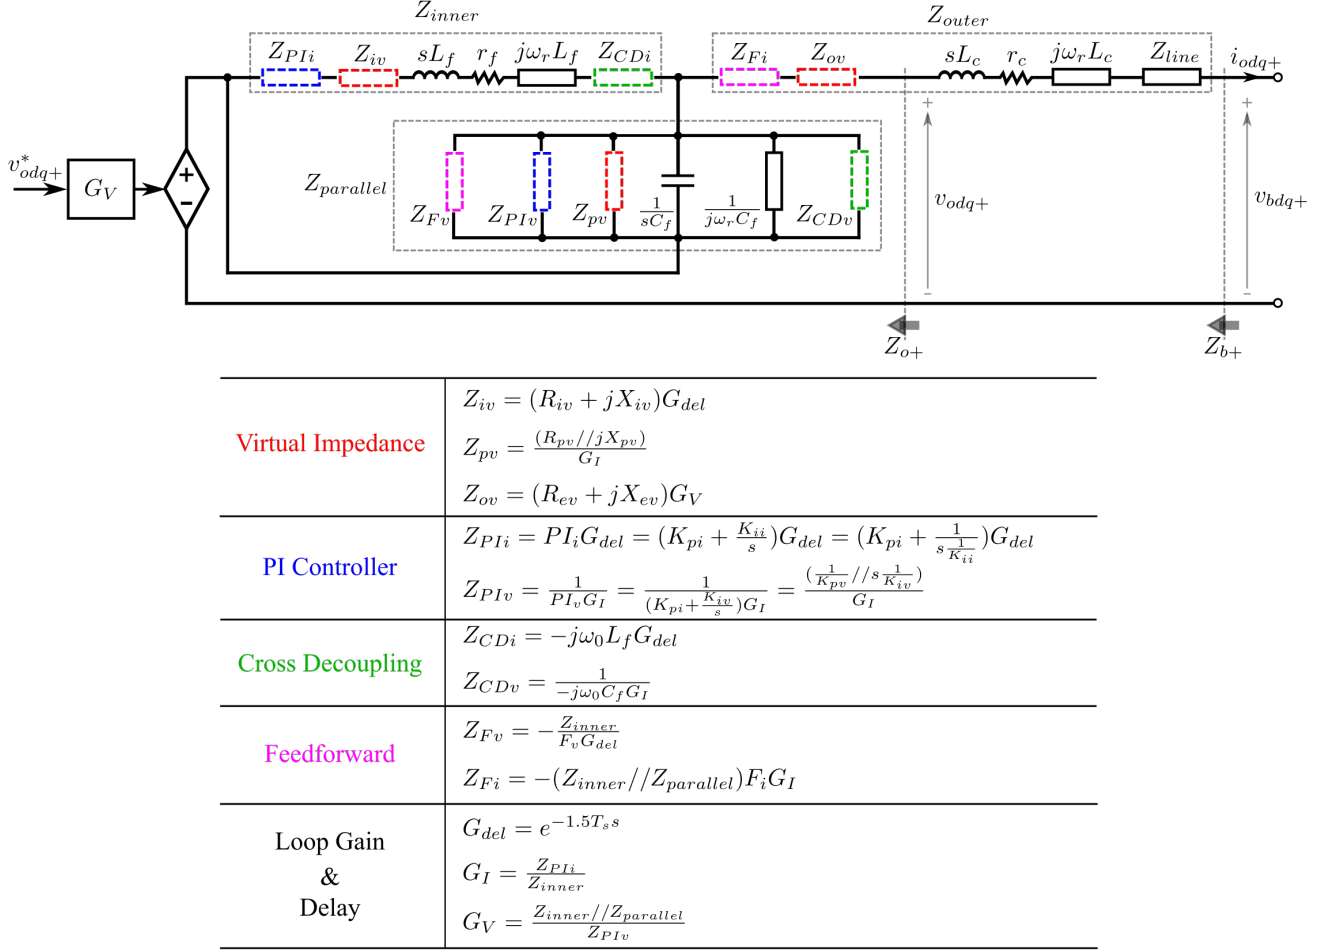 Z_{inner}
Z_{outer}
Z_{PIi} Z_{iv} sL_f r_f jω_rL_f Z_{CDi} Z_{Fi} Z_{ov} sL_c r_c jω_rL_c Z_{line} i_{odq+}
+ +
v^*_{odq+} G_V + - Z_{parallel} v_{odq+} v_{bdq+}
Z_{Fv} Z_{PIv} Z_{pv} \frac{1}{sC_f} \frac{1}{jω_rC_f} Z_{CDv}
- -
Z_{o+} Z_{b+}
Virtual Impedance
Z_{iv} = (R_{iv} + jX_{iv})G_{del}
Z_{pv} = \frac{(R_{pv}//jX_{pv})}{G_I}
Z_{ov} = (R_{ev} + jX_{ev})G_V
PI Controller
Z_{PIi} = PI_iG_{del} = (K_{pi} + \frac{K_{ii}}{s})G_{del} = (K_{pi} + \frac{1}{s\frac{1}{K_{ii}}})G_{del}
Z_{PIv} = \frac{1}{PI_vG_I} = \frac{1}{(K_{pi}+\frac{K_{iv}}{s})G_I} = \frac{(\frac{1}{K_{pv}}//s\frac{1}{K_{iv}})}{G_I}
Cross Decoupling
Z_{CDi} = -jω_0L_fG_{del}
Z_{CDv} = \frac{1}{-jω_0C_fG_I}
Feedforward
Z_{Fv} = -\frac{Z_{inner}}{F_vG_{del}}
Z_{Fi} = -(Z_{inner}//Z_{parallel})F_iG_I
Loop Gain
&
Delay
G_{del} = e^{-1.5T_ss}
G_I = \frac{Z_{PIi}}{Z_{inner}}
G_V = \frac{Z_{inner}//Z_{parallel}}{Z_{PIv}}